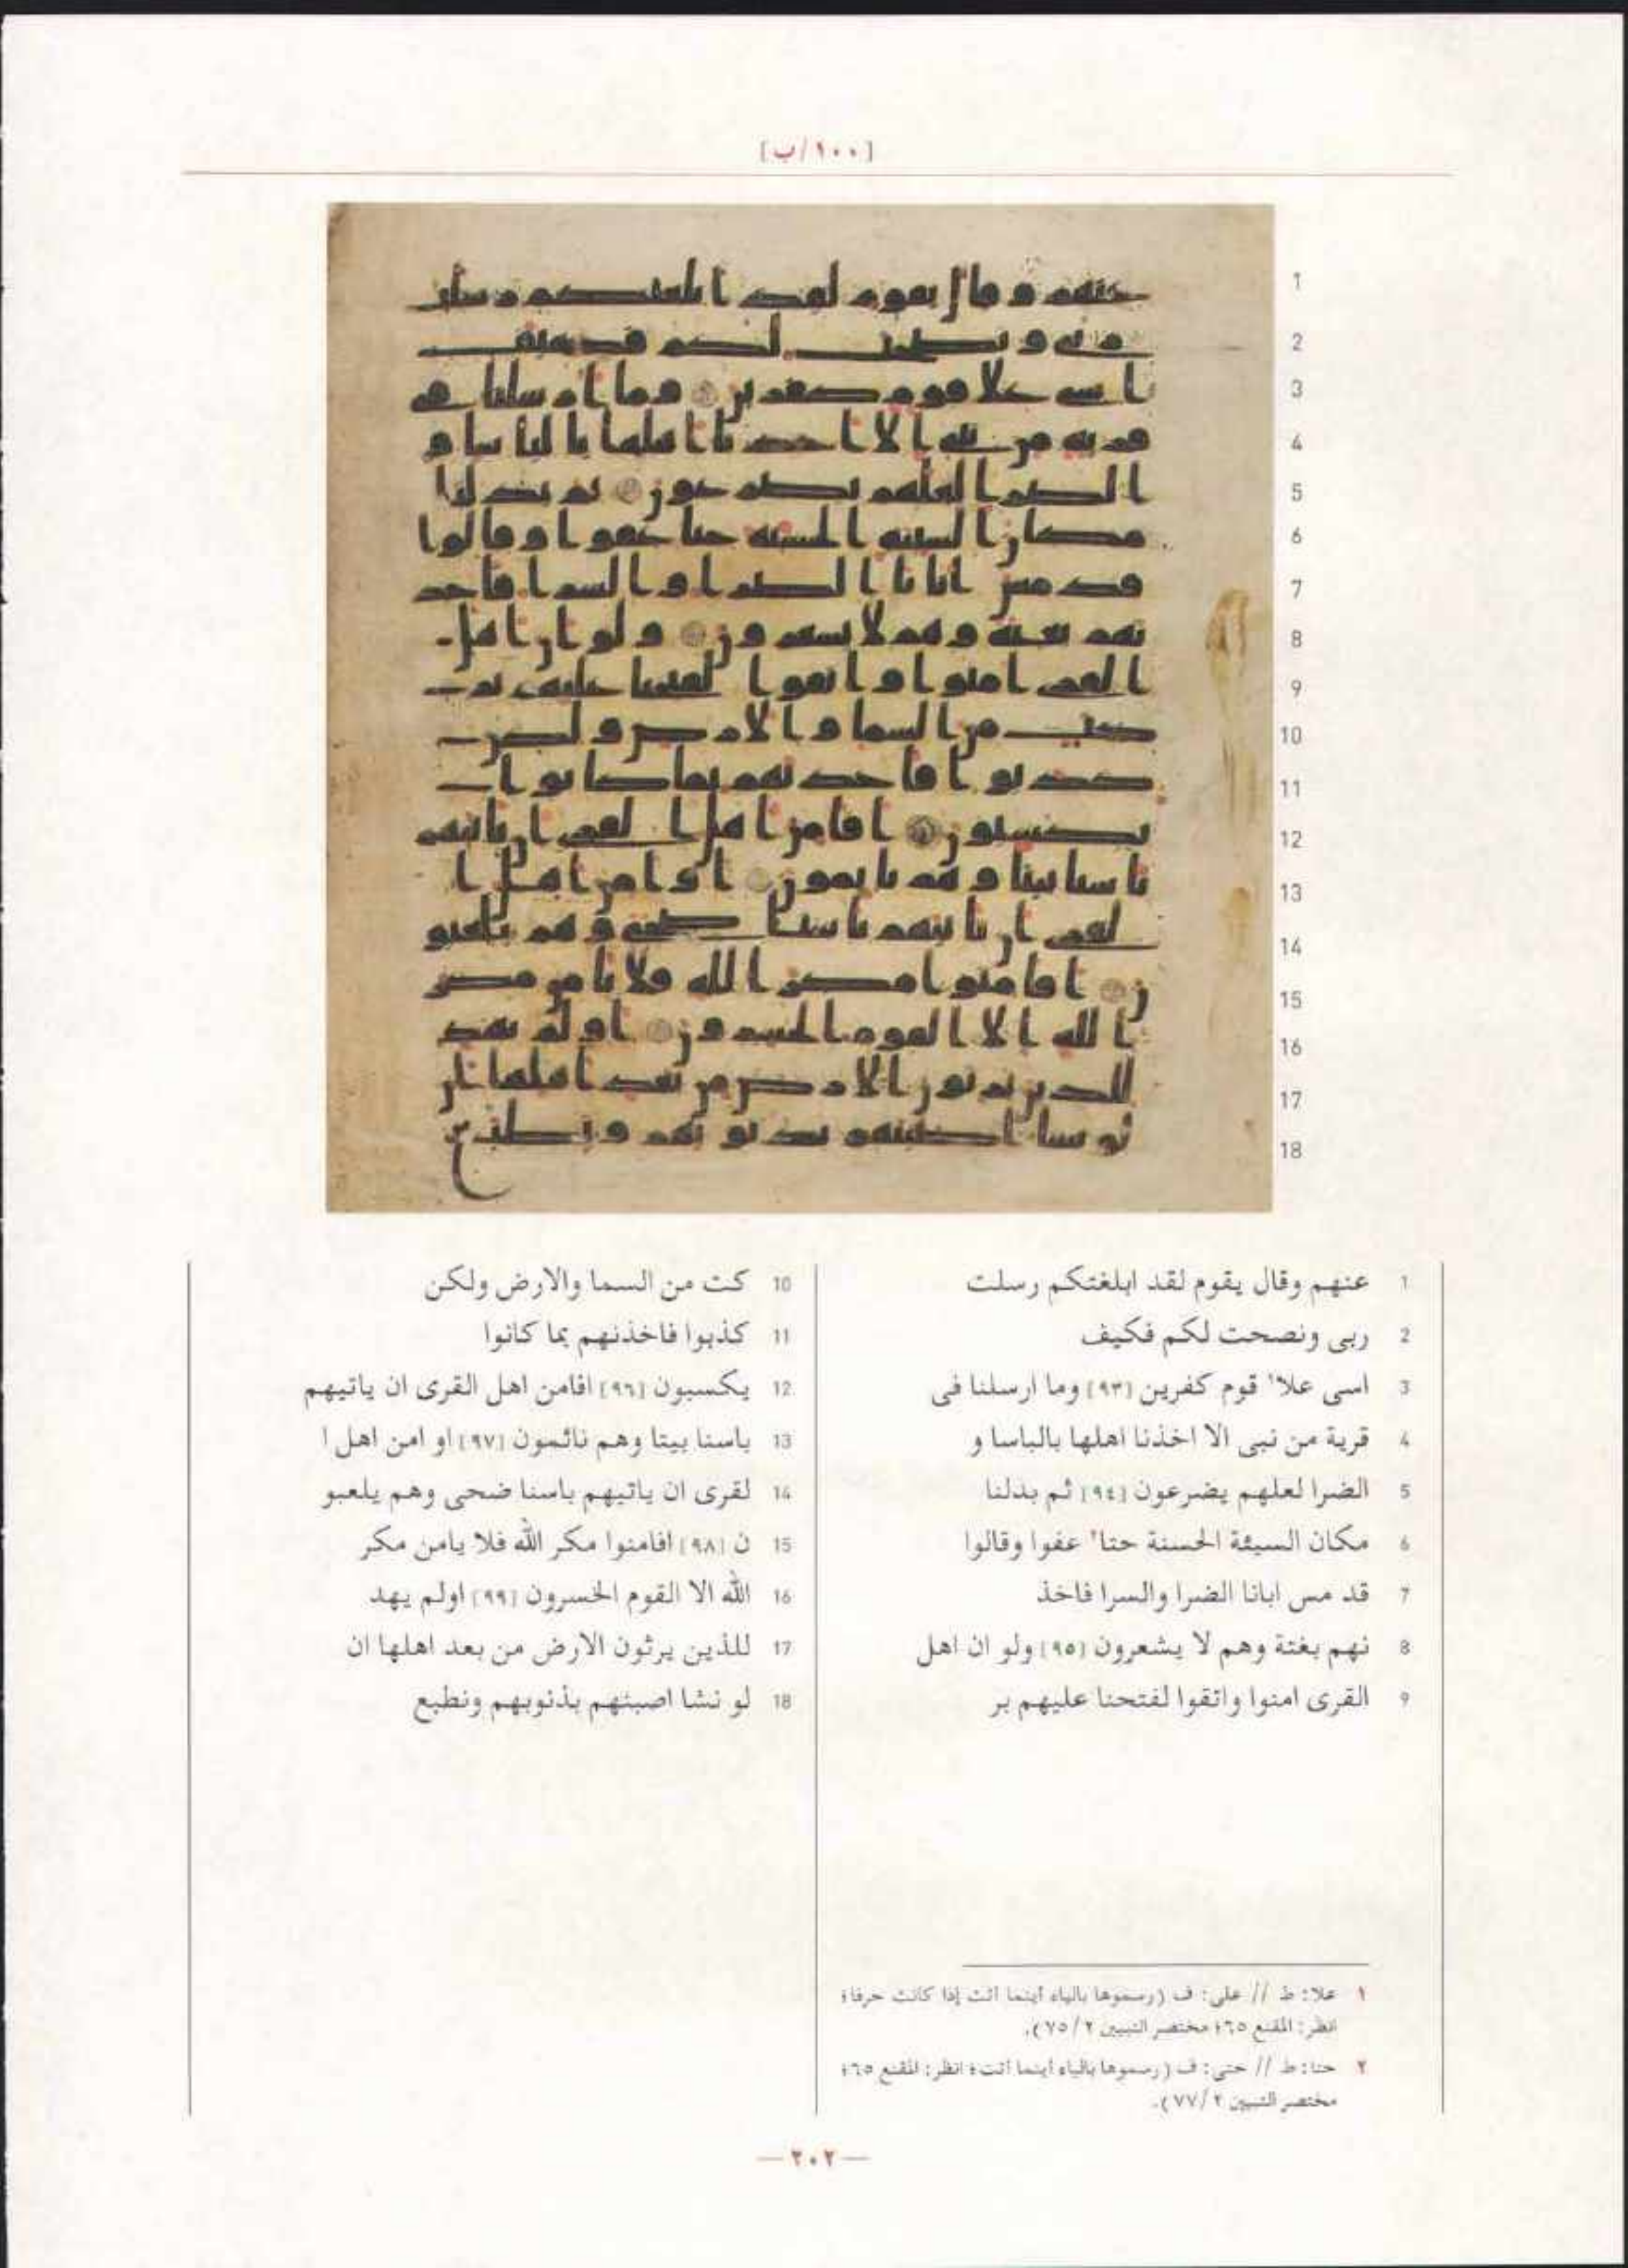 [١٠٠/ب]
1 عنهم وقال يقوم لقد ابلغتكم رسلت
2 ربى ونصحت لكم فكيف
3 اسى علا١ قوم كفرين [٩٣] وما ارسلنا فى
4 قرية من نبى الا اخذنا اهلها بالباسا و
5 الضرا لعلهم يضرعون [٩٤] ثم بدلنا
6 مكان السيئة الحسنة حتا٢ عفوا وقالوا
7 قد مس ابانا الضرا والسرا فاخذ
8 نهم بغتة وهم لا يشعرون [٩٥] ولو ان اهل
9 القرى امنوا واتقوا لفتحنا عليهم بر
10 كت من السما والارض ولكن
11 كذبوا فاخذنهم بما كانوا
12 يكسبون [٩٦] افامن اهل القرى ان ياتيهم
13 باسنا بيتا وهم نائمون [٩٧] او امن اهل ا
14 لقرى ان ياتيهم باسنا ضحى وهم يلعبو
15 ن [٩٨] افامنوا مكر الله فلا يامن مكر
16 الله الا القوم الخسرون [٩٩] اولم يهد
17 للذين يرثون الارض من بعد اهلها ان
18 لو نشا اصبنهم بذنوبهم ونطبع
١ علا: ط // على: ف (رسموها بالياء أينما أتت إذا كانت حرفا؛
انظر: المقنع ٦٥؛ مختصر التبيين ٧٥/٢).
٢ حتا: ط // حتى: ف (رسموها بالياء أينما أتت؛ انظر: المقنع ٦٥؛
مختصر التبيين ٧٧/٢).
— ٢٠٢ —